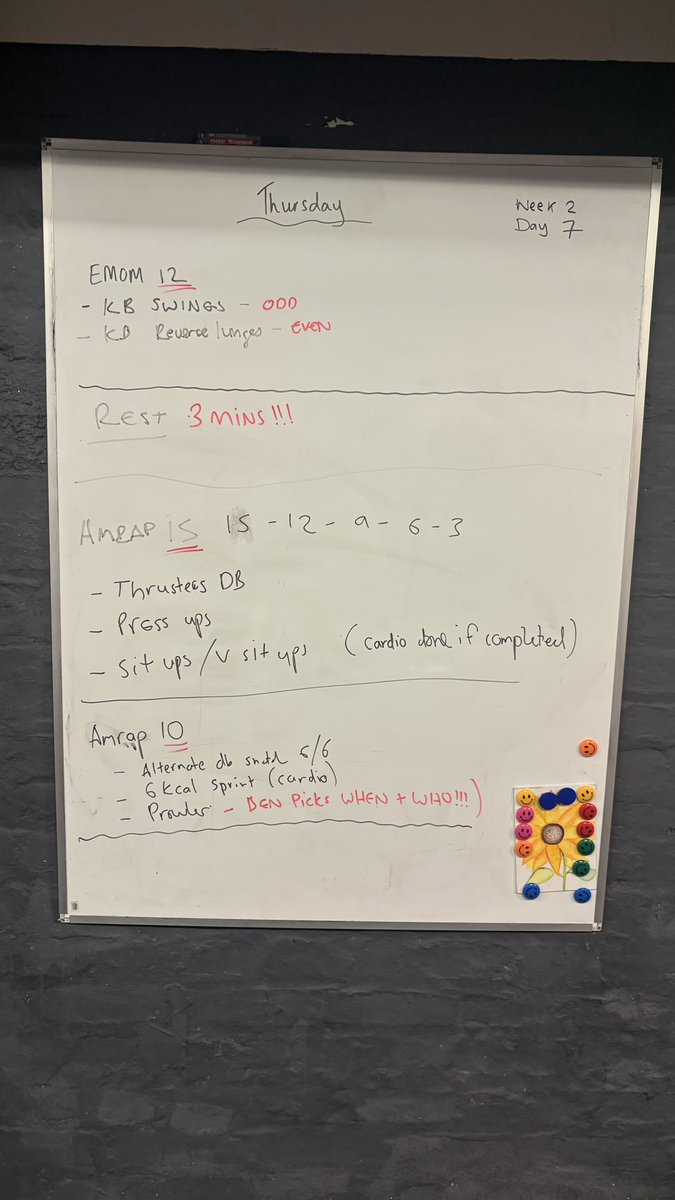 Thursday
Week 2
Day 7
EMOM 12
- KB SWINGS - ODD
- KB Reverse lunges - EVEN
REST 3 MINS!!!
AMRAP 15 15 - 12 - 9 - 6 - 3
- Thrusters DB
- Press ups
- Sit ups / V sit ups (cardio done if completed)
Amrap 10
- Alternate db 6/6
- 6 Kcal Sprint (cardio)
- Prowler - BEN Picks WHEN + WHO!!!)